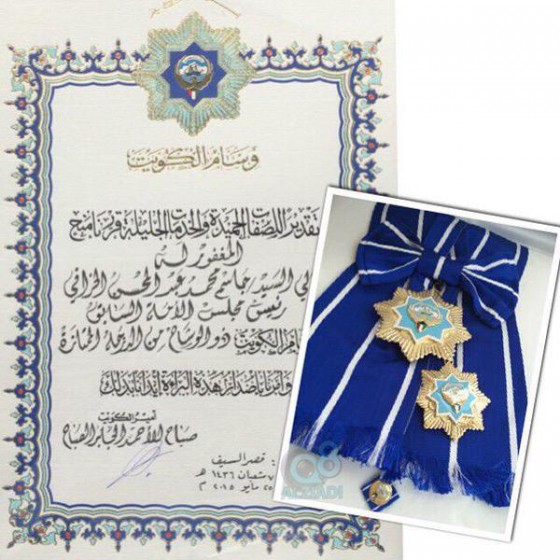 وسام الكويت
تقديرا للصفات الحميدة والخدمات الجليلة قررنا منح
المغفور له
السيد جاسم محمد عبد المحسن الخرافي
رئيس مجلس الأمة السابق
الكويت ذو الوشاح من الدرجة الممتازة
وأمرنا باصدار هذه البراءة إيذانا بذلك
أمير الكويت
صباح الأحمد الجابر الصباح
قصر السيف
شعبان ١٤٣٦ هـ
مايو ٢٠١٥ م
AZZIADI